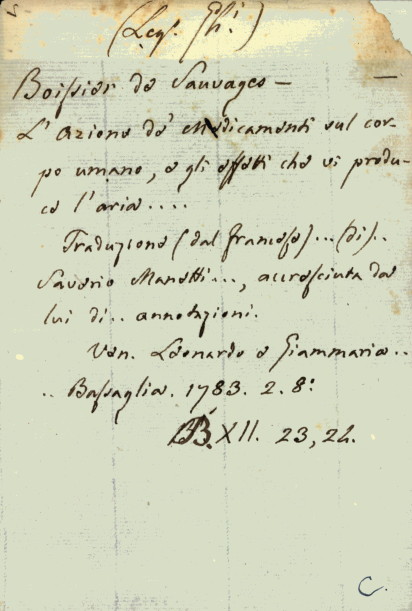 (Leg. Ghi.)
Boissier de Sauvages —
L'azione de' Medicamenti sul cor-
po umano, e gli effetti che vi produ-
ce l'aria....
Traduzione (dal francese)... (di)..
Saverio Manetti..., accresciuta da
lui di.. annotazioni.
Ven. Leonardo e Giammaria..
.. Bassaglia. 1783. 2. 8:
B. XII. 23, 24.
C.